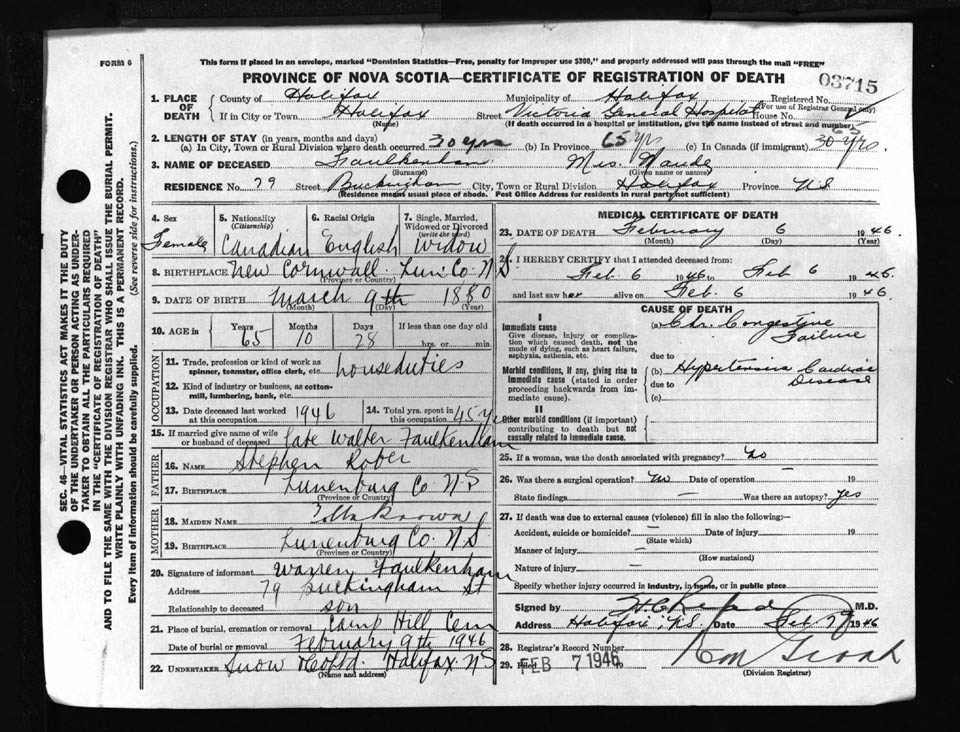 FORM 6
This form if placed in an envelope, marked "Dominion Statistics—Free, penalty for improper use $300," and properly addressed will pass through the mail "FREE"
PROVINCE OF NOVA SCOTIA—CERTIFICATE OF REGISTRATION OF DEATH
03715
1. PLACE OF DEATH
County of Halifax Municipality of Halifax Registered No.
(For use of Registrar General only)
If in City or Town Halifax Street Victoria General Hospital House No.
(Name) (If death occurred in a hospital or institution, give the name instead of street and number)
2. LENGTH OF STAY (in years, months and days)
(a) In City, Town or Rural Division where death occurred 30 yrs (b) In Province 65 yrs (c) In Canada (if immigrant) 65
30 yrs.
3. NAME OF DECEASED Faulkenham Mrs. Maude
(Surname) (Given name or names)
RESIDENCE No. 79 Street Buckingham City, Town or Rural Division Halifax Province N.S
(Residence means usual place of abode. Post Office Address for residents in rural parts not sufficient)
4. Sex 5. Nationality (Citizenship) 6. Racial Origin 7. Single, Married, Widowed or Divorced (write the word)
Female Canadian English Widow
8. BIRTHPLACE New Cornwall Lun. Co. N.S.
(Province or Country)
9. DATE OF BIRTH March 9th 1880
(Month) (Day) (Year)
10. AGE in Years Months Days If less than one day old
65 10 28 hrs. or min.
OCCUPATION
11. Trade, profession or kind of work as spinner, teamster, office clerk, etc. houseduties
12. Kind of industry or business, as cotton-mill, lumbering, bank, etc.
13. Date deceased last worked at this occupation 1946
14. Total yrs. spent in this occupation 45 yrs
15. If married give name of wife or husband of deceased Late Walter Faulkenham
FATHER
16. NAME Stephen Rober
17. BIRTHPLACE Lunenburg Co. N.S
(Province or Country)
MOTHER
18. MAIDEN NAME
19. BIRTHPLACE Lunenburg Co. N.S.
(Province or Country)
20. Signature of informant Warren Faulkenham
Address 79 Buckingham St
Relationship to deceased son
21. Place of burial, cremation or removal Camp Hill Cem
Date of burial or removal February 9th 1946
22. UNDERTAKER Snow & Co Ltd. Halifax N.S
(Name and address)
MEDICAL CERTIFICATE OF DEATH
23. DATE OF DEATH February 6 1946.
(Month) (Day) (Year)
24. I HEREBY CERTIFY that I attended deceased from:
Feb 6 1946 to Feb 6 1946.
and last saw her alive on Feb. 6 1946.
CAUSE OF DEATH
I
Immediate cause
Give disease, injury or complication which caused death, not the mode of dying, such as heart failure, asphyxia, asthenia, etc.
(a) Chr. Congestive Failure
due to
Morbid conditions, if any, giving rise to immediate cause (stated in order proceeding backwards from immediate cause).
(b) Hypertensive Cardiac Disease
due to
(c)
II
Other morbid conditions (if important) contributing to death but not causally related to immediate cause.
25. If a woman, was the death associated with pregnancy? No
26. Was there a surgical operation? No Date of operation 19
State findings — Was there an autopsy? Yes
27. If death was due to external causes (violence) fill in also the following:—
Accident, suicide or homicide? — Date of injury 19
(State which)
Manner of injury —
(How sustained)
Nature of injury —
Specify whether injury occurred in industry, in home, or in public place
Signed by M.D.
Address Halifax, N.S. Date Feb 7 1946
28. Registrar's Record Number
29. Filed FEB 7 1946
(Division Registrar)
SEC. 46—VITAL STATISTICS ACT MAKES IT THE DUTY OF THE UNDERTAKER OR PERSON ACTING AS UNDERTAKER TO OBTAIN ALL THE PARTICULARS REQUIRED IN THE "CERTIFICATE OF REGISTRATION OF DEATH" AND TO FILE THE SAME WITH THE DIVISION REGISTRAR WHO SHALL ISSUE THE BURIAL PERMIT.
WRITE PLAINLY WITH UNFADING INK. THIS IS A PERMANENT RECORD.
Every item of information should be carefully supplied. (See reverse side for instructions.)